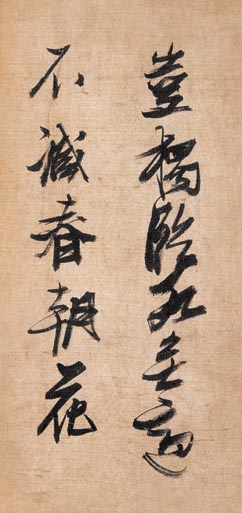 豈獨臨無適
不減春朝花